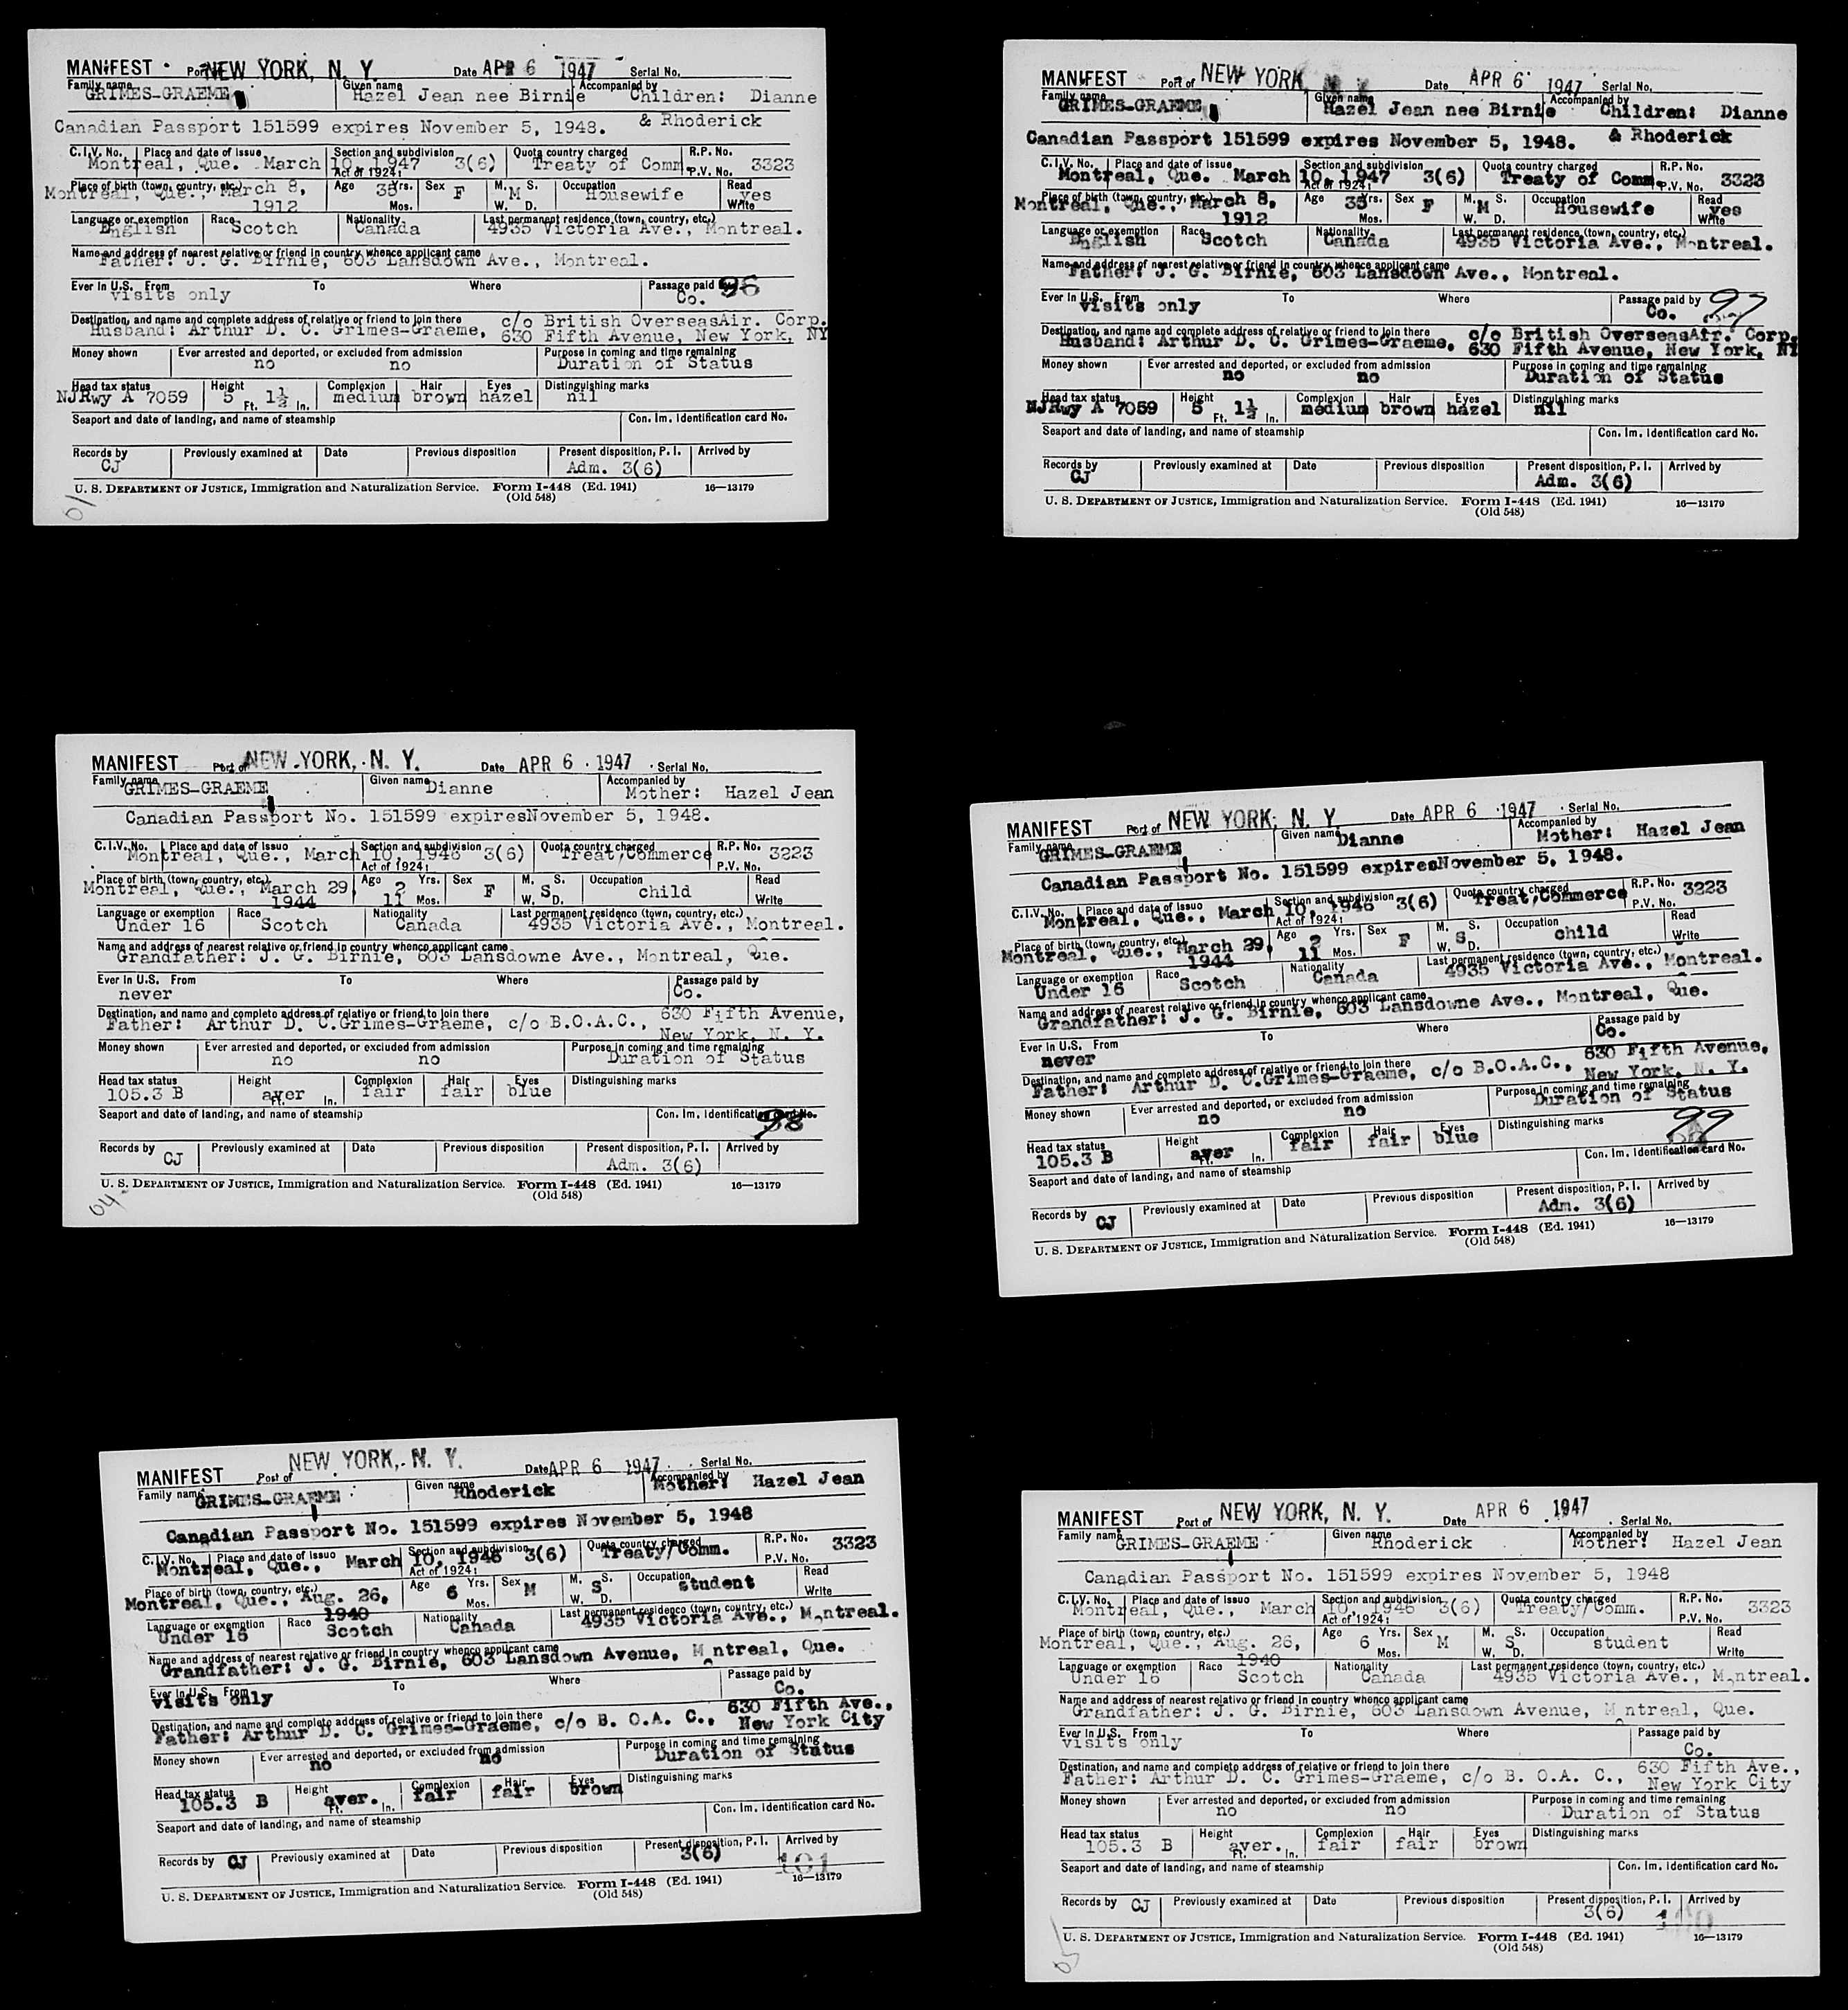 MANIFEST Port of NEW YORK, N. Y. Date APR 6 1947 Serial No.
Family name GRIMES-GRAEME Given name Hazel Jean nee Birnie Accompanied by Children: Dianne
Canadian Passport 151599 expires November 5, 1948. & Rhoderick
C.I.V. No. Place and date of issue Montreal, Que. March 10, 1947 Section and subdivision Act of 1924: 3(6) Quota country charged Treaty of Comm R.P. No. P.V. No. 3323
Place of birth (town, country, etc.) Montreal, Que., March 8, 1912 Age 35 Yrs. Mos. Sex F M. S. W. D. M Occupation Housewife Read yes Write
Language or exemption English Race Scotch Nationality Canada Last permanent residence (town, country, etc.) 4935 Victoria Ave., Montreal.
Name and address of nearest relative or friend in country whence applicant came Father: J. G. Birnie, 603 Lansdown Ave., Montreal.
Ever in U.S. From visits only To Where Passage paid by Co. 96
Destination, and name and complete address of relative or friend to join there Husband: Arthur D. C. Grimes-Graeme, c/o British OverseasAir. Corp. 630 Fifth Avenue, New York, NY
Money shown Ever arrested and deported, or excluded from admission no no Purpose in coming and time remaining Duration of Status
Head tax status NJRwy A 7059 Height 5 Ft. 1½ In. Complexion medium Hair brown Eyes hazel Distinguishing marks nil
Seaport and date of landing, and name of steamship Con. Im. Identification card No.
Records by CJ Previously examined at Date Previous disposition Present disposition, P. I. Adm. 3(6) Arrived by
U. S. DEPARTMENT OF JUSTICE, Immigration and Naturalization Service. Form I-448 (Ed. 1941) 16—13179
(Old 548)
MANIFEST Port of NEW YORK, N Y Date APR 6 1947 Serial No.
Family name GRIMES-GRAEME Given name Hazel Jean nee Birnie Accompanied by Children: Dianne
Canadian Passport 151599 expires November 5, 1948. & Rhoderick
C.I.V. No. Place and date of issue Montreal, Que. March 10, 1947 Section and subdivision Act of 1924: 3(6) Quota country charged Treaty of Comm. R.P. No. P.V. No. 3323
Place of birth (town, country, etc.) Montreal, Que., March 8, 1912 Age 35 Yrs. Mos. Sex F M. S. W. D. M Occupation Housewife Read yes Write
Language or exemption English Race Scotch Nationality Canada Last permanent residence (town, country, etc.) 4935 Victoria Ave., Montreal.
Name and address of nearest relative or friend in country whence applicant came Father: J. G. Birnie, 603 Lansdown Ave., Montreal.
Ever in U.S. From visits only To Where Passage paid by Co. 97
Destination, and name and complete address of relative or friend to join there Husband: Arthur D. C. Grimes-Graeme. c/o British OverseasAir. Corp. 630 Fifth Avenue, New York, NY
Money shown Ever arrested and deported, or excluded from admission no no Purpose in coming and time remaining Duration of Status
Head tax status NJRwy A 7059 Height 5 Ft. 1½ In. Complexion medium Hair brown Eyes hazel Distinguishing marks nil
Seaport and date of landing, and name of steamship Con. Im. Identification card No.
Records by CJ Previously examined at Date Previous disposition Present disposition, P. I. Adm. 3(6) Arrived by
U. S. DEPARTMENT OF JUSTICE, Immigration and Naturalization Service. Form I-448 (Ed. 1941) 16—13179
(Old 548)
MANIFEST Port of NEW YORK, N. Y. Date APR 6 1947 Serial No.
Family name GRIMES-GRAEME Given name Dianne Accompanied by Mother: Hazel Jean
Canadian Passport No. 151599 expiresNovember 5, 1948.
C.I.V. No. Place and date of issuo Montreal, Que., March 10, 1946 Section and subdivision Act of 1924: 3(6) Quota country charged Treat,Commerce R.P. No. P.V. No. 3223
Place of birth (town, country, etc.) Montreal, Que., March 29, 1944 Age 2 Yrs. 11 Mos. Sex F M. S. W. D. S Occupation child Read Write
Language or exemption Under 16 Race Scotch Nationality Canada Last permanent residence (town, country, etc.) 4935 Victoria Ave., Montreal.
Name and address of nearest relative or friend in country whence applicant came Grandfather: J. G. Birnie, 603 Lansdowne Ave., Montreal, Que.
Ever in U.S. From never To Where Passage paid by Co.
Destination, and name and complete address of relative or friend to join there Father: Arthur D. C.Grimes-Graeme, c/o B.O.A.C., 630 Fifth Avenue, New York, N. Y.
Money shown Ever arrested and deported, or excluded from admission no no Purpose in coming and time remaining Duration of Status
Head tax status 105.3 B Height aver Ft. In. Complexion fair Hair fair Eyes blue Distinguishing marks
Seaport and date of landing, and name of steamship Con. Im. Identification card No. 98
Records by CJ Previously examined at Date Previous disposition Present disposition, P. I. Adm. 3(6) Arrived by
U. S. DEPARTMENT OF JUSTICE, Immigration and Naturalization Service. Form I-448 (Ed. 1941) 16—13179
(Old 548)
04
MANIFEST Port of NEW YORK, N. Y. Date APR 6 1947 Serial No.
Family name GRIMES-GRAEME Given name Dianne Accompanied by Mother: Hazel Jean
Canadian Passport No. 151599 expiresNovember 5, 1948.
C.I.V. No. Place and date of issuo Montreal, Que., March 10, 1946 Section and subdivision Act of 1924: 3(6) Quota country charged Treat,Commerce R.P. No. P.V. No. 3223
Place of birth (town, country, etc.) Montreal, Que., March 29, 1944 Age 2 Yrs. 11 Mos. Sex F M. S. W. D. S Occupation child Read Write
Language or exemption Under 16 Race Scotch Nationality Canada Last permanent residence (town, country, etc.) 4935 Victoria Ave., Montreal.
Name and address of nearest relative or friend in country whence applicant came Grandfather: J. G. Birnie, 603 Lansdowne Ave., Montreal, Que.
Ever in U.S. From never To Where Passage paid by Co.
Destination, and name and complete address of relative or friend to join there Father: Arthur D. C.Grimes-Graeme, c/o B.O.A.C., 630 Fifth Avenue, New York, N. Y.
Money shown Ever arrested and deported, or excluded from admission no no Purpose in coming and time remaining Duration of Status
Head tax status 105.3 B Height aver Ft. In. Complexion fair Hair fair Eyes blue Distinguishing marks 99
Seaport and date of landing, and name of steamship Con. Im. Identification card No.
Records by CJ Previously examined at Date Previous disposition Present disposition, P. I. Adm. 3(6) Arrived by
U. S. DEPARTMENT OF JUSTICE, Immigration and Naturalization Service. Form I-448 (Ed. 1941) 16—13179
(Old 548)
MANIFEST Post of NEW YORK, N. Y. Date APR 6 1947 Serial No.
Family name GRIMES-GRAEME Given name Rhoderick Accompanied by Mother: Hazel Jean
Canadian Passport No. 151599 expires November 5, 1948
C.I.V. No. Place and date of issuo Montreal, Que., March 10, 1946 Section and subdivision Act of 1924: 3(6) Quota country charged Treaty/Comm. R.P. No. P.V. No. 3323
Place of birth (town, country, etc.) Montreal, Que., Aug. 26, 1940 Age 6 Yrs. Mos. Sex M M. S. W. D. S Occupation student Read Write
Language or exemption Under 16 Race Scotch Nationality Canada Last permanent residence (town, country, etc.) 4935 Victoria Ave., Montreal.
Name and address of nearest relative or friend in country whence applicant came Grandfather: J. G. Birnie, 603 Lansdown Avenue, M ntreal, Que.
Ever in U.S. From visits only To Where Passage paid by Co.
Destination, and name and complete address of relative or friend to join there Father: Arthur D. C. Grimes-Graeme, c/o B. O.A. C., 630 Fifth Ave., New York City
Money shown Ever arrested and deported, or excluded from admission no no Purpose in coming and time remaining Duration of Status
Head tax status 105.3 B Height aver. Ft. In. Complexion fair Hair fair Eyes brown Distinguishing marks
Seaport and date of landing, and name of steamship Con. Im. Identification card No.
Records by CJ Previously examined at Date Previous disposition Present disposition, P. I. 3(6) Arrived by 101
U. S. DEPARTMENT OF JUSTICE, Immigration and Naturalization Service. Form I-448 (Ed. 1941) 16—13179
(Old 548)
MANIFEST Port of NEW YORK, N. Y. Date APR 6 1947 Serial No.
Family name GRIMES-GRAEME Given name Rhoderick Accompanied by Mother: Hazel Jean
Canadian Passport No. 151599 expires November 5, 1948
C.I.V. No. Place and date of issuo Montreal, Que., March 10, 1946 Section and subdivision Act of 1924: 3(6) Quota country charged Treaty/Comm. R.P. No. P.V. No. 3323
Place of birth (town, country, etc.) Montreal, Que., Aug. 26, 1940 Age 6 Yrs. Mos. Sex M M. S. W. D. S Occupation student Read Write
Language or exemption Under 16 Race Scotch Nationality Canada Last permanent residence (town, country, etc.) 4935 Victoria Ave., Montreal.
Name and address of nearest relative or friend in country whence applicant came Grandfather: J. G. Birnie, 603 Lansdown Avenue, M ntreal, Que.
Ever in U.S. From visits only To Where Passage paid by Co.
Destination, and name and complete address of relative or friend to join there Father: Arthur D. C. Grimes-Graeme, c/o B. O.A. C., 630 Fifth Ave., New York City
Money shown Ever arrested and deported, or excluded from admission no no Purpose in coming and time remaining Duration of Status
Head tax status 105.3 B Height aver. Ft. In. Complexion fair Hair fair Eyes brown Distinguishing marks
Seaport and date of landing, and name of steamship Con. Im. Identification card No.
Records by CJ Previously examined at Date Previous disposition Present disposition, P. I. 3(6) Arrived by 100
U. S. DEPARTMENT OF JUSTICE, Immigration and Naturalization Service. Form I-448 (Ed. 1941) 16—13179
(Old 548)